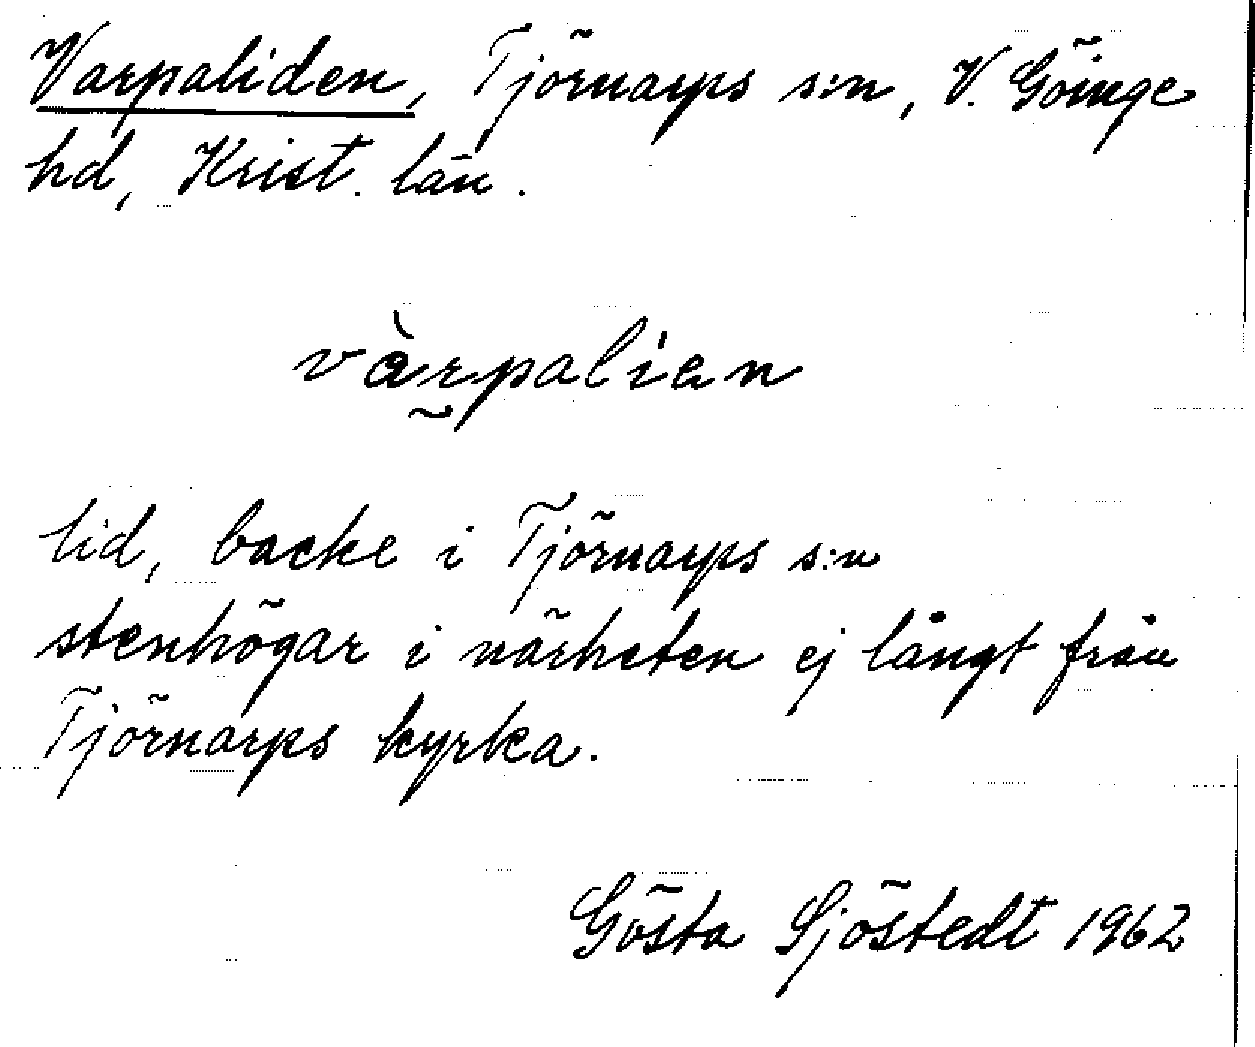 Varpaliden, Tjörnarps s:n, V. Göinge
hd, Krist. län.
vàr̰paliən
lid, backe i Tjörnarps s:n
stenhögar i närheten ej långt från
Tjörnarps kyrka.
Gösta Sjöstedt 1962